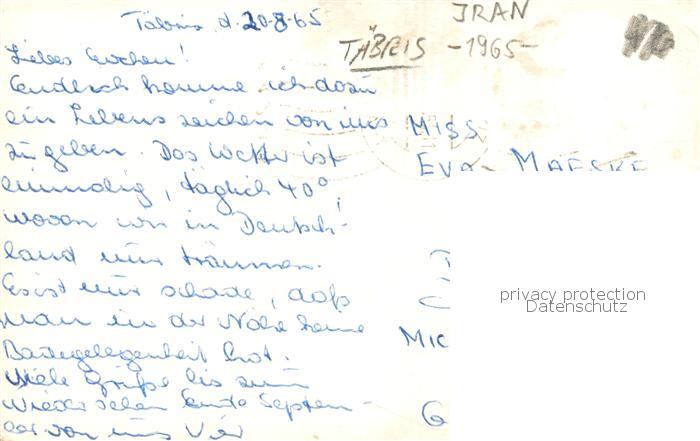 Täbris d. 20-8-65
JRAN
TÄBREIS -1965-
Liebes Evchen!
Endlich komme ich dazu
ein Lebenszeichen von uns
zu geben. Das Wetter ist
einmalig, täglich 40°,
wovon wir in Deutsch-
land nur träumen.
Es ist nur schade, daß
man in der Nähe keine
Badegelegenheit hat.
Viele Grüße bis zum
Wiedersehen Ende Septem-
ber von uns Vier
MISS
EVA MAESKE
MIC
G
privacy protection
Datenschutz